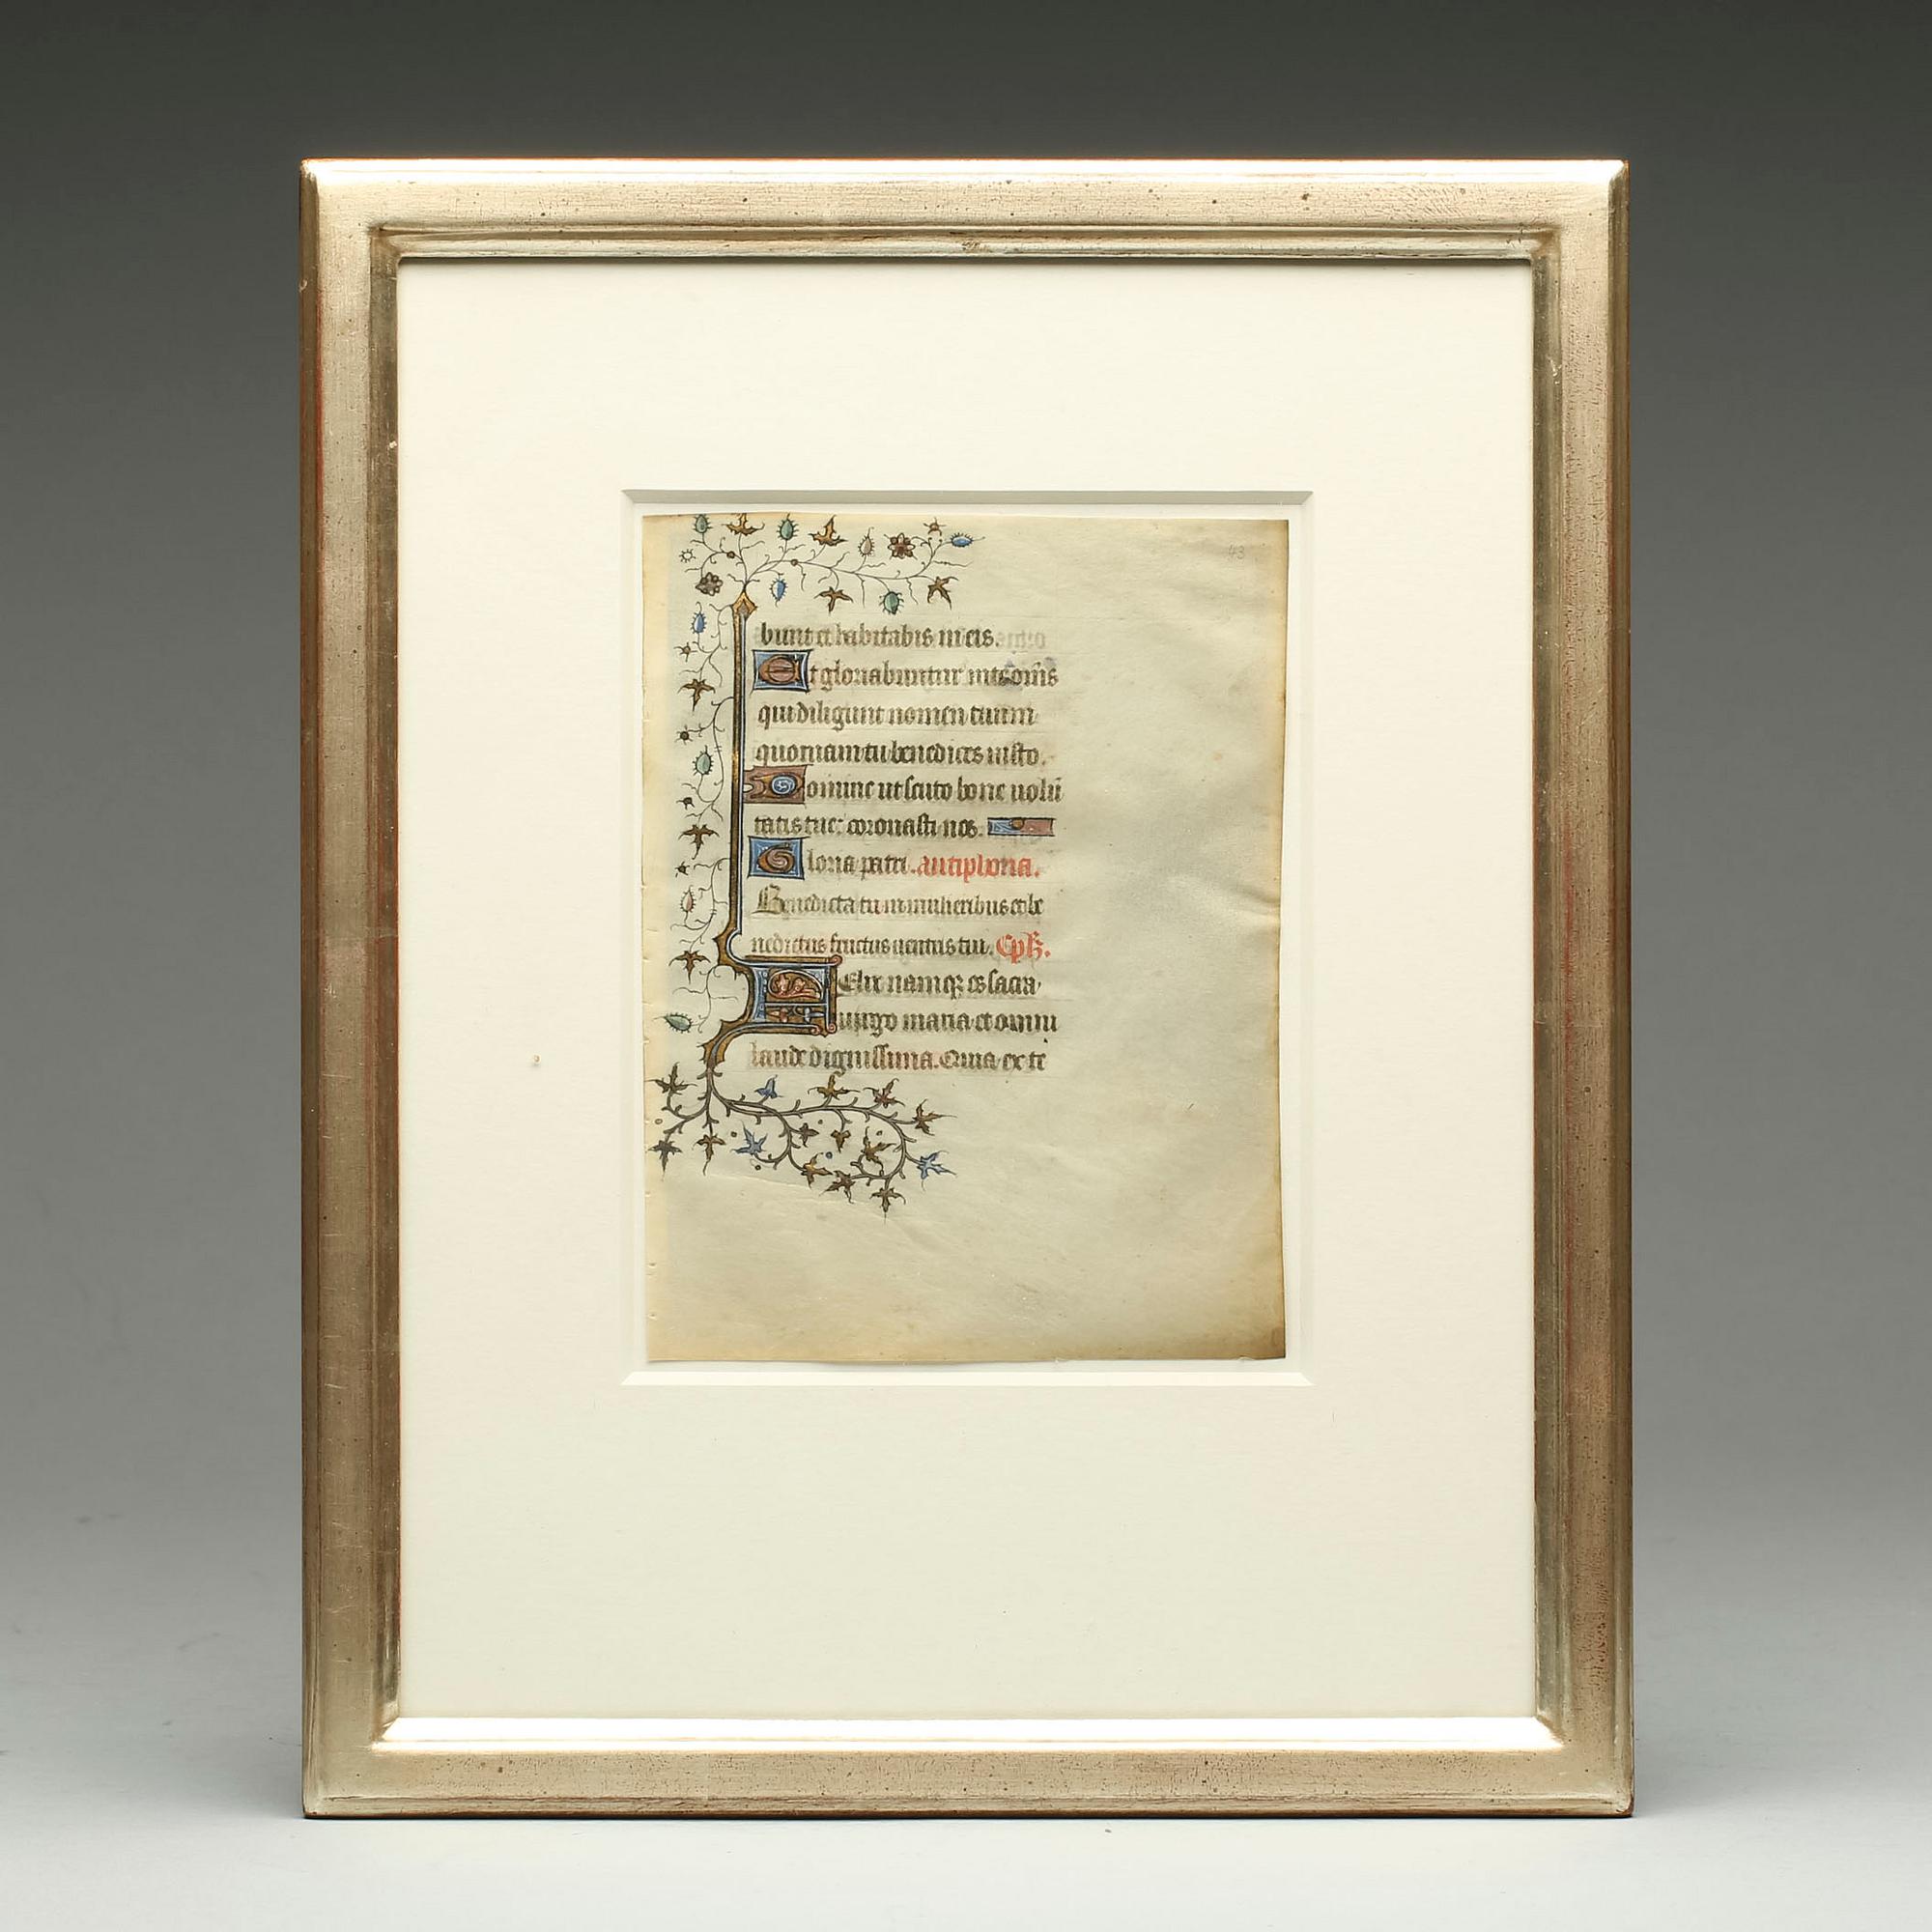 43
bunt et habitabis in eis.
Et gloriabuntur in te om̄s
qui diligunt nomen tuum
quoniam tu benedices iusto.
Domine ut scuto bone uolū
tatis tue: coronasti nos.
Gloria patri. antiphona.
Benedicta tu in mulieribus et be
nedictus fructus uentris tui. Ps̄.
Felix namqꝫ es sacra
uirgo maria et omni
laude dignissima. Quia ex te